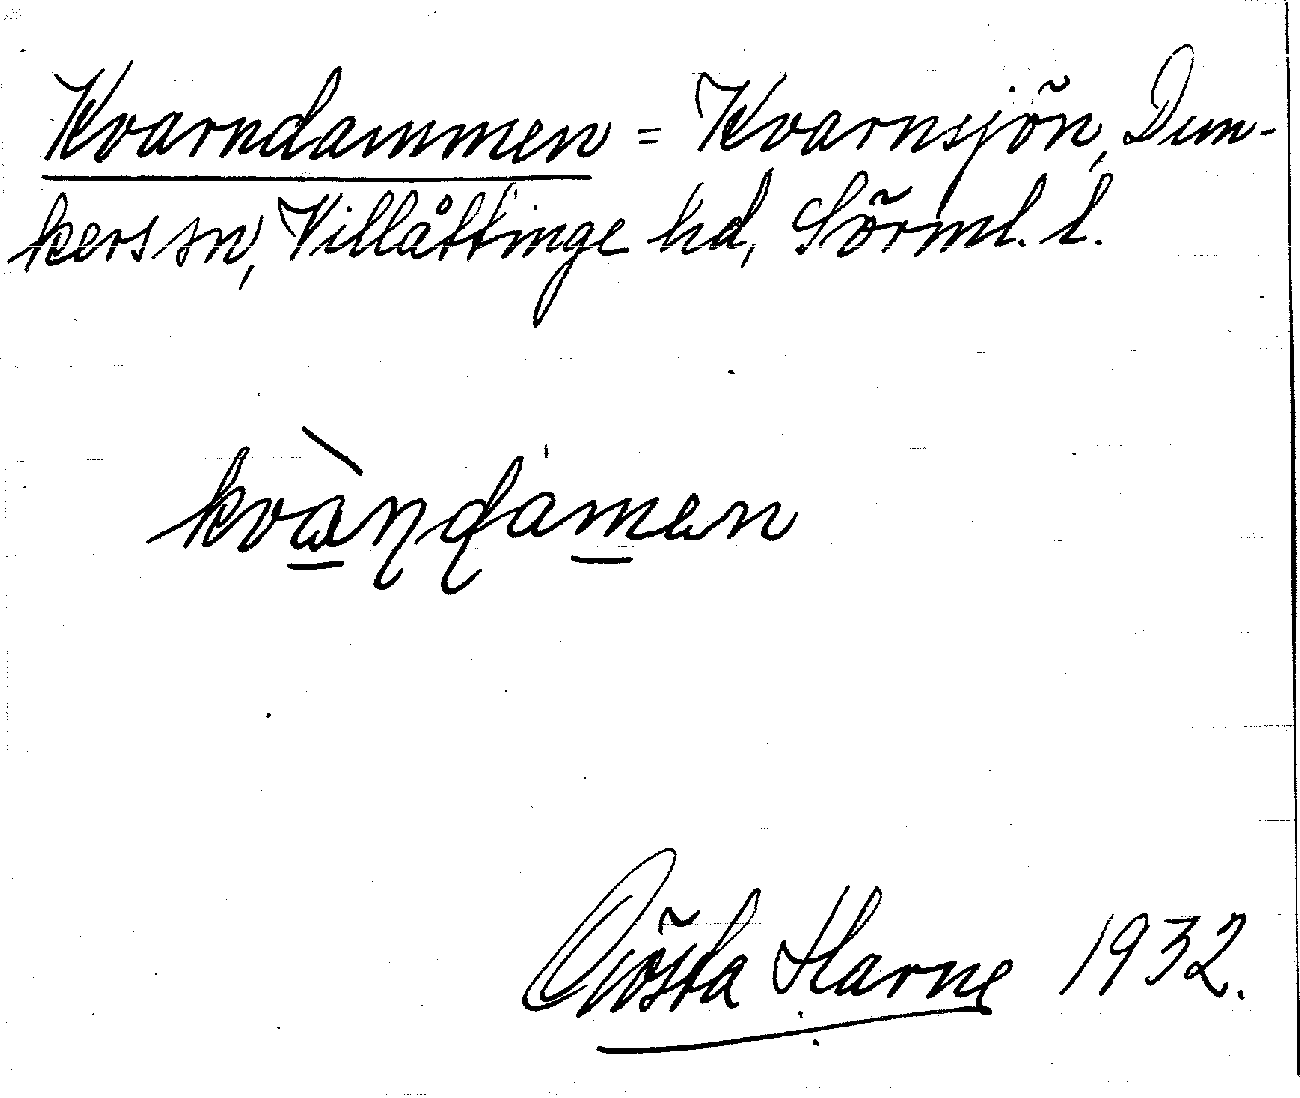 Kvarndammen = Kvarnsjön, Dun-
kers sn, Villåttinge hd, Sörml. l.
kvàɳɖamen
Gösta Harne 1932.